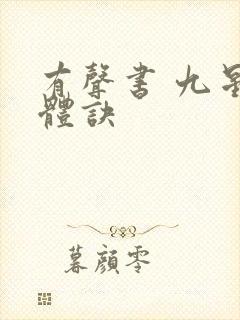 有聲書 九星
體訣
暮顏零